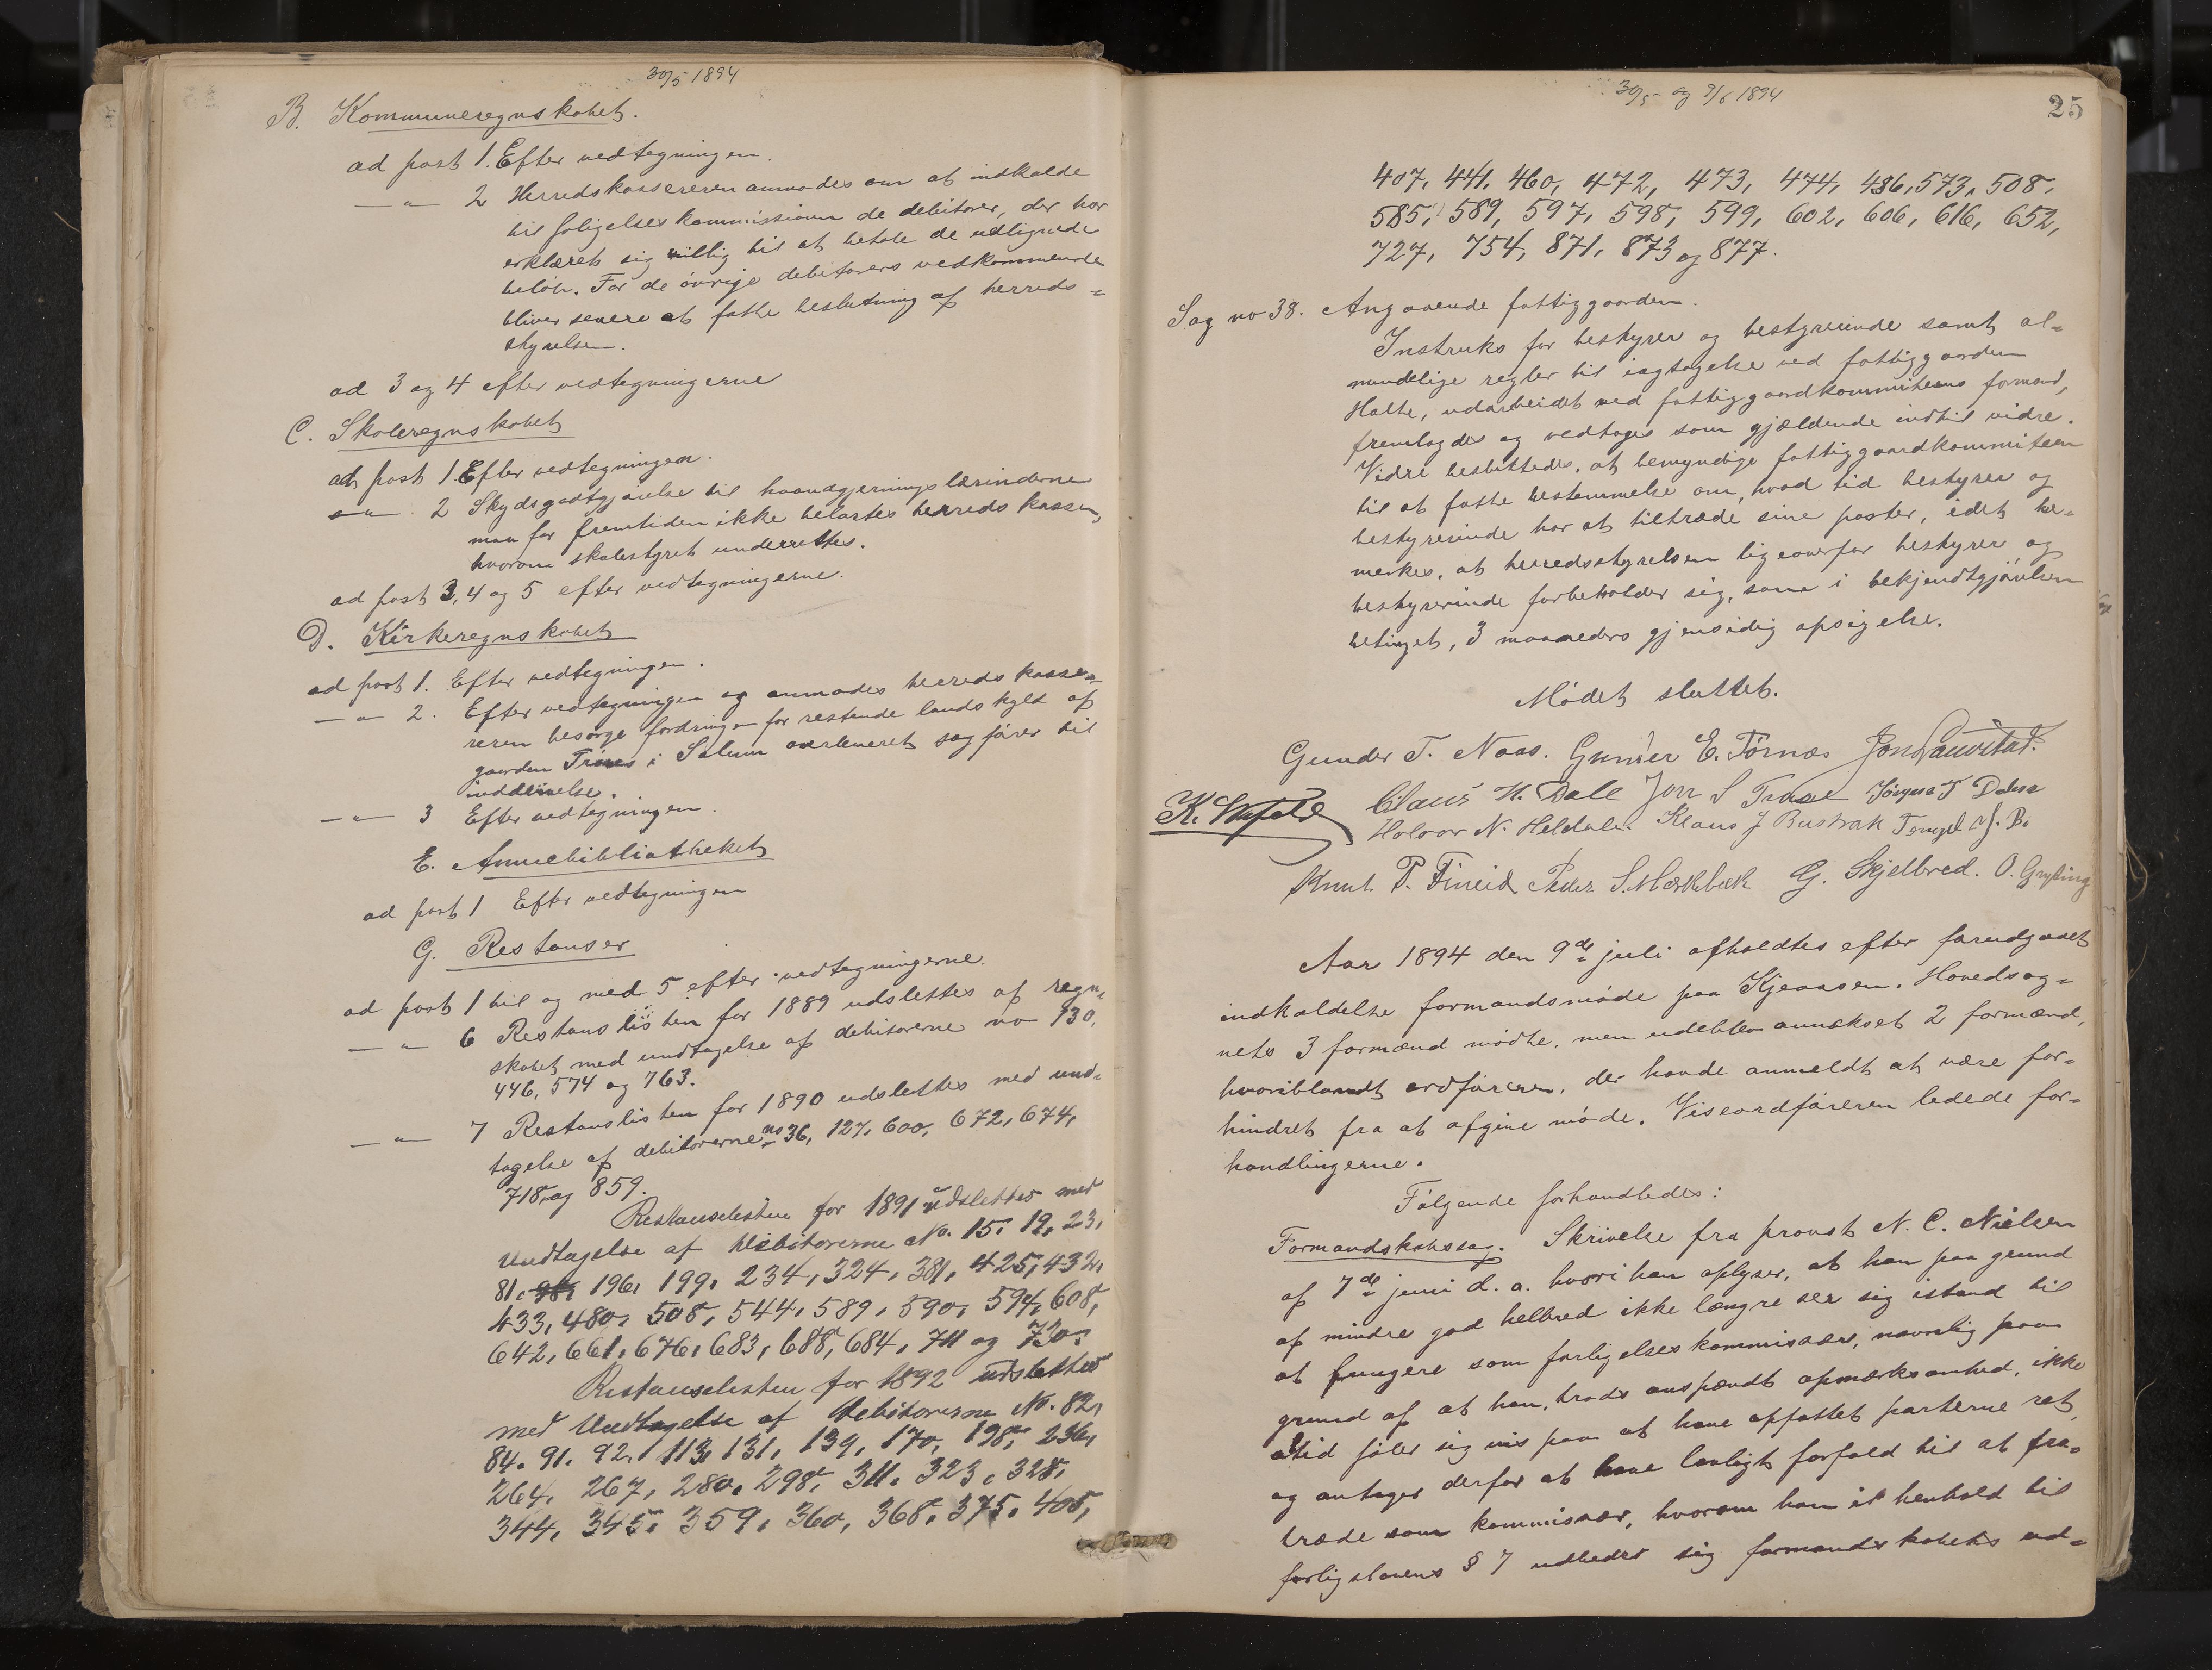 30/5 1894
B. Kommuneregnskabet.
ad post 1. Efter vedtegningen.
—"— 2 Herredskassereren anmodes om at indkalde
til forligelseskommissionen de debitorer, der har
erklæret sig villig til at betale de udlignede
beløb. For de øvrige debitorers vedkommende
bliver senere at fatte beslutning af herreds-
styrelsen.
ad 3 og 4 efter vedtegningerne
C. Skoleregnskabet
ad post 1. Efter vedtegningen.
—"— 2 Skydsgodtgjørelse til haandgjerningslærinderne
maa for fremtiden ikke belastes herredskassen,
hvorom skolestyret underrettes.
ad post 3, 4 og 5 efter vedtegningerne.
D. Kirkeregnskabet
ad post 1. Efter vedtegningen.
—"— 2. Efter vedtegningen og anmodes herredskasse-
reren besørge fordringen for restende landskyld af
gaarden i Solum overleveret sagfører til
inddrivelse.
—"— 3 Efter vedtegningen.
E. Almuebibliotheket
ad post 1 Efter vedtegningen
G. Restanser
ad post 1 til og med 5 efter vedtegningerne.
—"— 6 Restanslisten for 1889 udslettes af regn-
skabet med undtagelse af debitorerne no 130,
446, 574 og 763.
—"— 7 Restanslisten for 1890 udslettes med und-
tagelse af debitorerne no 36, 127, 600, 672, 674,
718, og 859.
Restanselisten for 1891 udslettes med
Undtagelse af Debitorerne No. 15. 19, 23,
81, 196, 199, 234, 324, 381, 425, 432,
433, 480, 508, 544, 589, 590, 594, 608,
642, 661, 676, 683, 688, 684, 711 og 730.
Restanselisten for 1892 udslettes
med Undtagelse af Debitorerne No. 82,
84. 91. 92. 113, 131, 139, 170, 198, 236,
264, 267, 280, 298, 311, 323, 328,
344, 345, 359, 360, 368, 375, 405,
30/5 og 9/6 1894
25
407, 441, 460, 472, 473, 474, 486, 573, 508,
585, 589, 597, 598, 599, 602, 606, 616, 652,
727, 754, 871, 873 og 877.
Sag no 38. Angaaende fattiggaarden.
Instruks for bestyrer og bestyrerinde samt al-
mindelige regler til iagtagelse ved fattiggaarden
Holte, udarbeidet ved fattiggaardkommiteens formand,
fremlagdes og vedtoges som gjældende indtil vidre.
Vidre besluttedes, at bemyndige fattiggaardkommiteen
til at fatte bestemmelse om, hvad tid bestyrer og
bestyrerinde har at tiltræde sine poster, idet be-
merkes, at herredsstyrelsen ligeoverfor bestyrer og
bestyrerinde forbeholder sig, som i bekjendtgjørelsen
betinget, 3 maaneders gjensidig opsigelse.
Mødet sluttet.
Gunder T. Naas. Gunder E. Tørnæs Jon Laurstad.
Claus H. Dale Jon S Jørgen T Dalen
Halvor N. Heldalen. Klaus J Bustrak
Knut P. Fineid Peder S. Mærkbæk G. Skjelbred. O. Gryting
Aar 1894 den 9de juli afholdtes efter forudgaaet
indkaldelse formandsmøde paa Kjeaasen. Hovedsog-
nets 3 formænd mødte, men udeblev annekset 2 formænd,
hvoriblandt ordføreren, der havde anmeldt at være for-
hindret fra at afgive møde. Viseordføreren ledede for-
handlingerne.
Følgende forhandledes:
Formandskabssag. Skrivelse fra provst N. C. Nielsen
af 7de juni d. a. hvori han oplyser, at han paa grund
af mindre god helbred ikke længre ser sig istand til
at fungere som forligelseskommissær, navnlig paa
grund af at han, trods anspændt opmærksomhed, ikke
altid føler sig vis paa at have opfattet parterne ret,
og antager derfor at have lovligt forfald til at fra-
træde som kommissær, hvorom han i henhold til
forligslovens § 7 udbeder sig formandskabets ud-